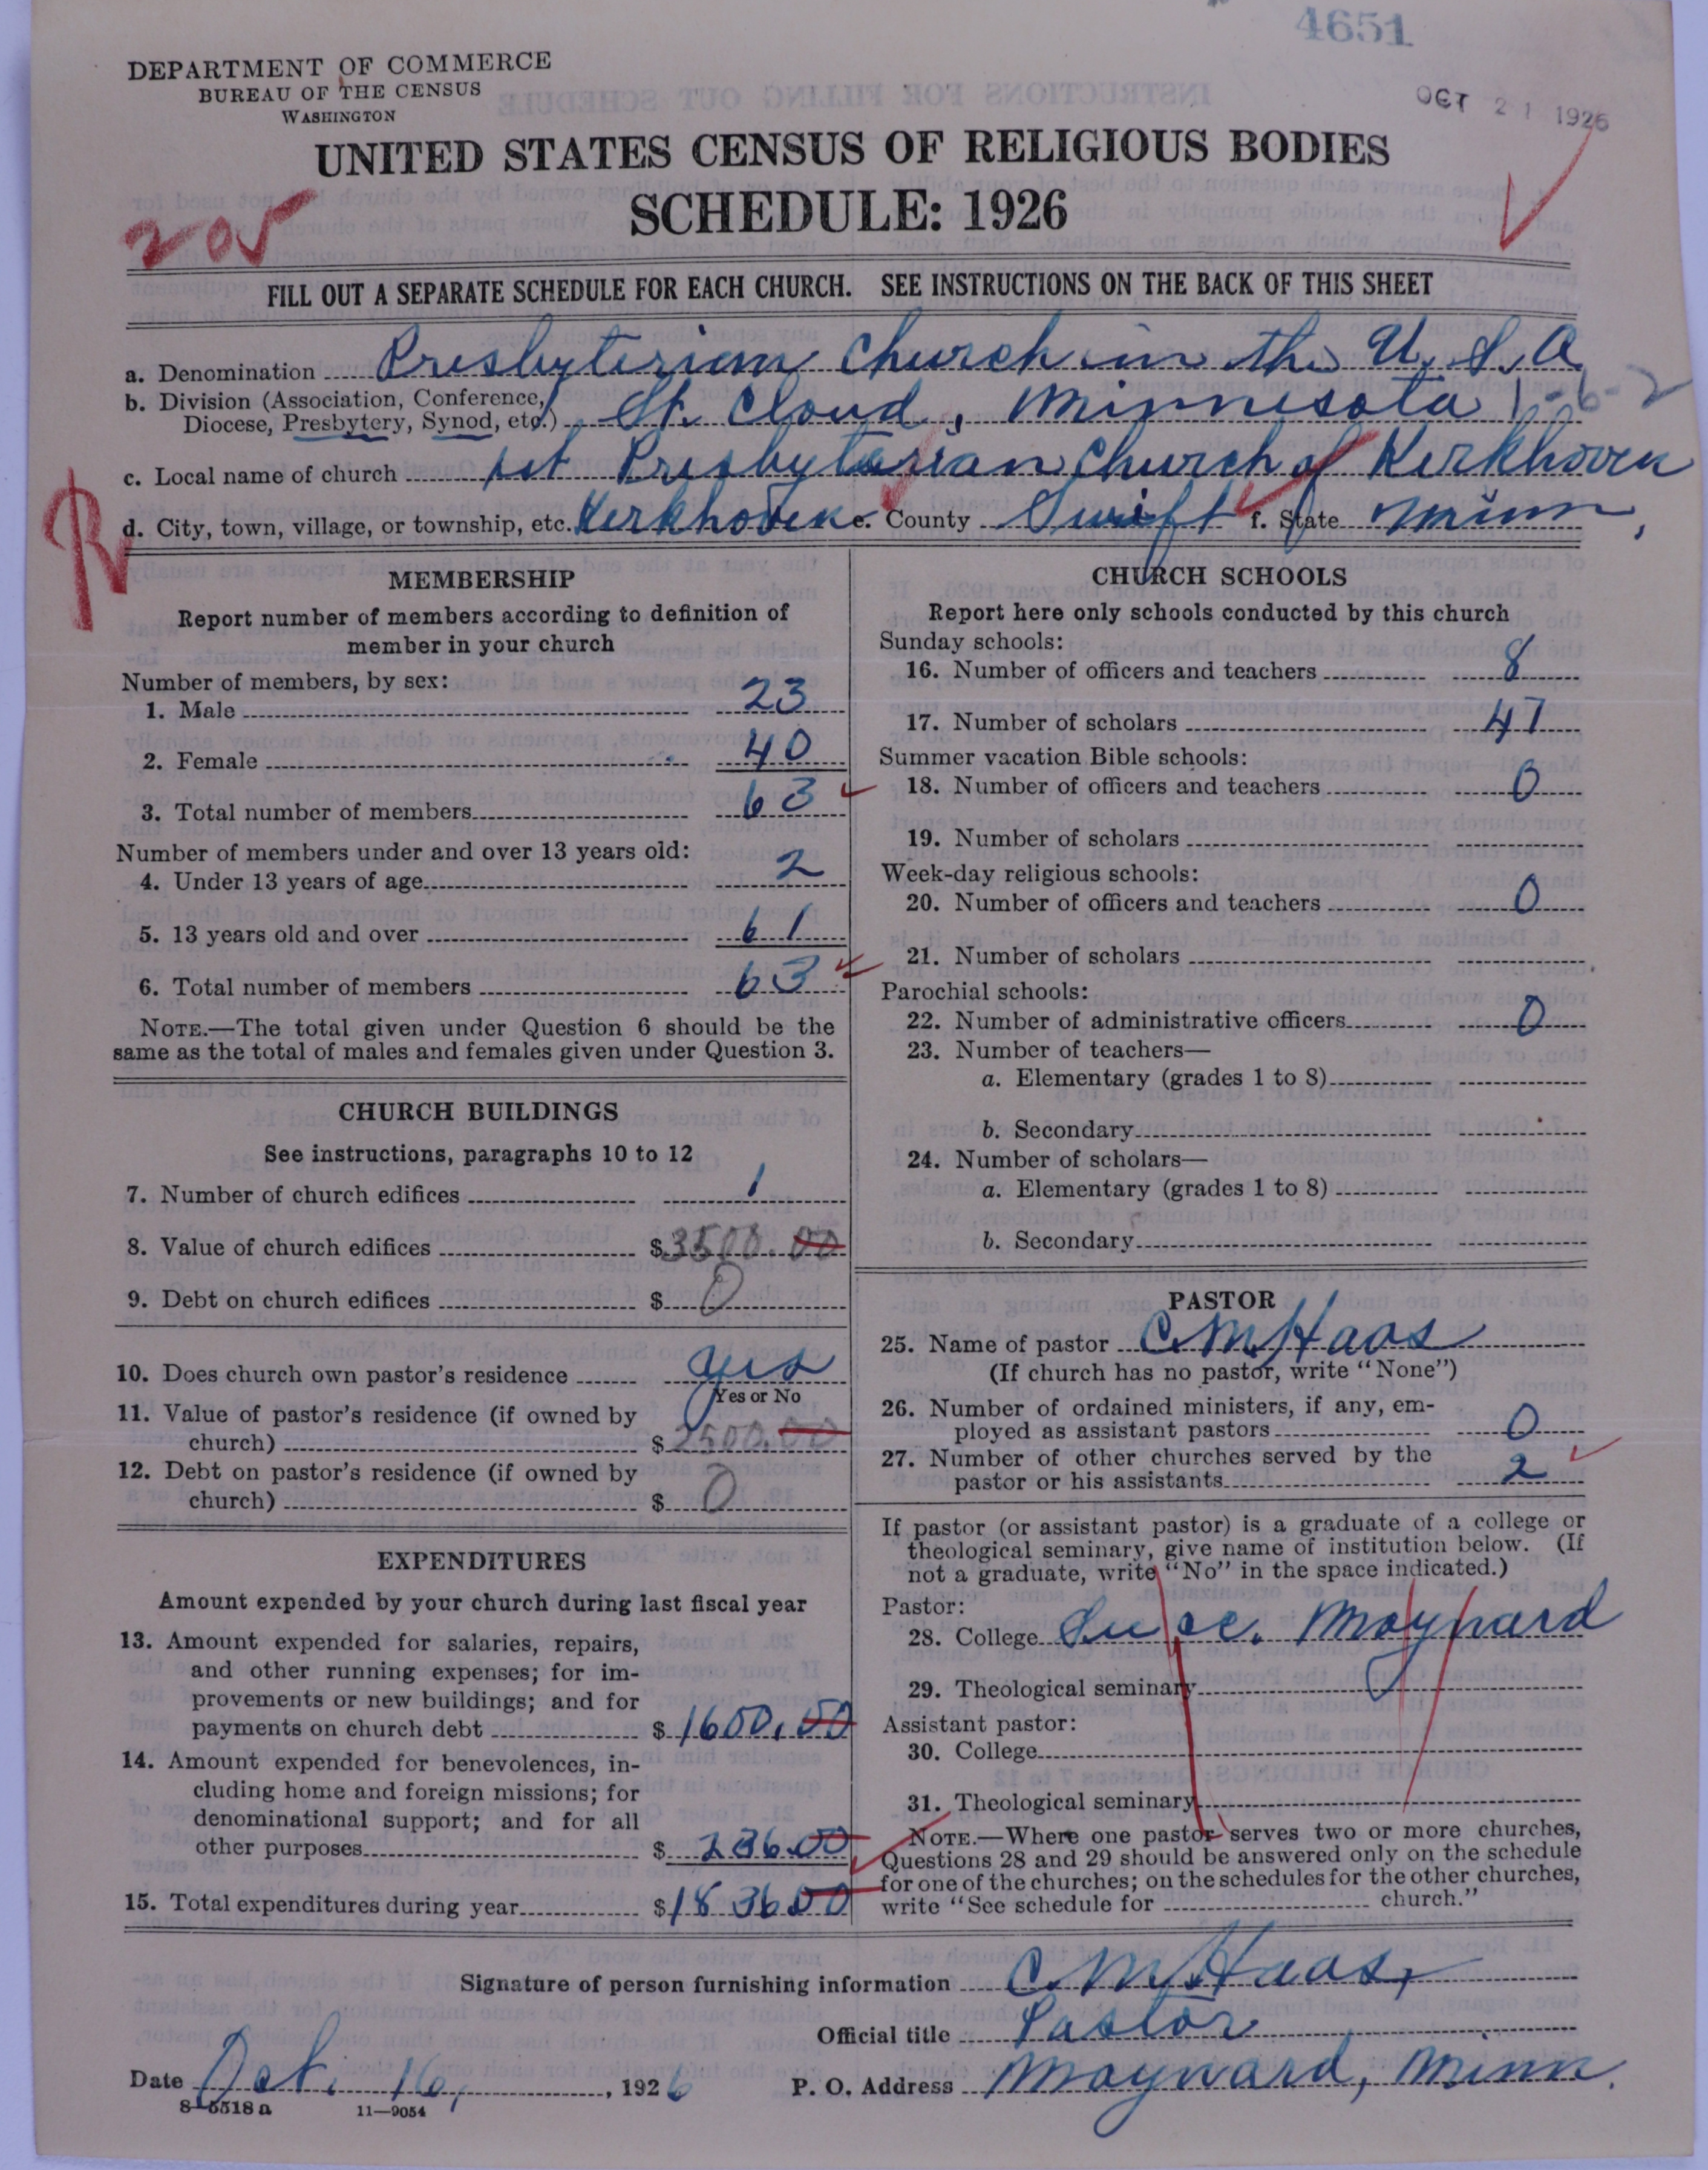 4651
DEPARTMENT OF COMMERCE
BUREAU OF THE CENSUS
WASHINGTON
OCT 21 1926
UNITED STATES CENSUS OF RELIGIOUS BODIES
SCHEDULE: 1926
205
FILL OUT A SEPARATE SCHEDULE FOR EACH CHURCH. SEE INSTRUCTIONS ON THE BACK OF THIS SHEET
a. Denomination Presbyterian Church in the U.S.A
b. Division (Association, Conference, Diocese, Presbytery, Synod, etc.) St. Cloud, Minnesota 1-6-2
c. Local name of church 1st Presbyterian Church of Kerkhoven
d. City, town, village, or township, etc. Kerkhoven e. County Swift f. State Minn,
R
MEMBERSHIP
Report number of members according to definition of
member in your church
Number of members, by sex:
1. Male 23
2. Female 40
3. Total number of members 63
Number of members under and over 13 years old:
4. Under 13 years of age 2
5. 13 years old and over 61
6. Total number of members 63
NOTE.—The total given under Question 6 should be the
same as the total of males and females given under Question 3.
CHURCH BUILDINGS
See instructions, paragraphs 10 to 12
7. Number of church edifices 1
8. Value of church edifices $3500.00
9. Debt on church edifices $ 0
10. Does church own pastor's residence yes
Yes or No
11. Value of pastor's residence (if owned by
church) $2500.00
12. Debt on pastor's residence (if owned by
church) $ 0
EXPENDITURES
Amount expended by your church during last fiscal year
13. Amount expended for salaries, repairs,
and other running expenses; for im-
provements or new buildings; and for
payments on church debt $1600.00
14. Amount expended for benevolences, in-
cluding home and foreign missions; for
denominational support; and for all
other purposes $ 236.00
15. Total expenditures during year $1836.00
CHURCH SCHOOLS
Report here only schools conducted by this church
Sunday schools:
16. Number of officers and teachers 8
17. Number of scholars 47
Summer vacation Bible schools:
18. Number of officers and teachers 0
19. Number of scholars
Week-day religious schools:
20. Number of officers and teachers 0
21. Number of scholars
Parochial schools:
22. Number of administrative officers 0
23. Number of teachers—
a. Elementary (grades 1 to 8)
b. Secondary
24. Number of scholars—
a. Elementary (grades 1 to 8)
b. Secondary
PASTOR
25. Name of pastor C. M. Haas
(If church has no pastor, write "None")
26. Number of ordained ministers, if any, em-
ployed as assistant pastors 0
27. Number of other churches served by the
pastor or his assistants 2
If pastor (or assistant pastor) is a graduate of a college or
theological seminary, give name of institution below. (If
not a graduate, write "No" in the space indicated.)
Pastor:
28. College Maynard
29. Theological seminary
Assistant pastor:
30. College
31. Theological seminary
NOTE.—Where one pastor serves two or more churches,
Questions 28 and 29 should be answered only on the schedule
for one of the churches; on the schedules for the other churches,
write "See schedule for church."
Signature of person furnishing information C M Haas,
Official title Pastor
Date Oct. 16, 1926 P. O. Address Maynard, Minn.
8-5518 a 11—9054